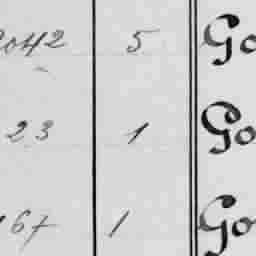 2042 5 Go
23 1 Go
67 1 Go